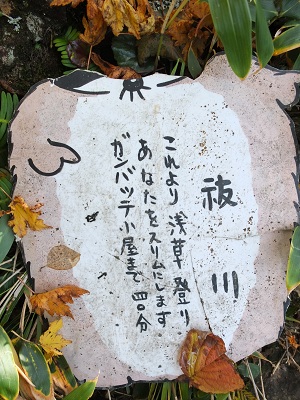 祓川
これより浅草登り
あなたをスリムにします
ガンバッテ小屋まで四〇分